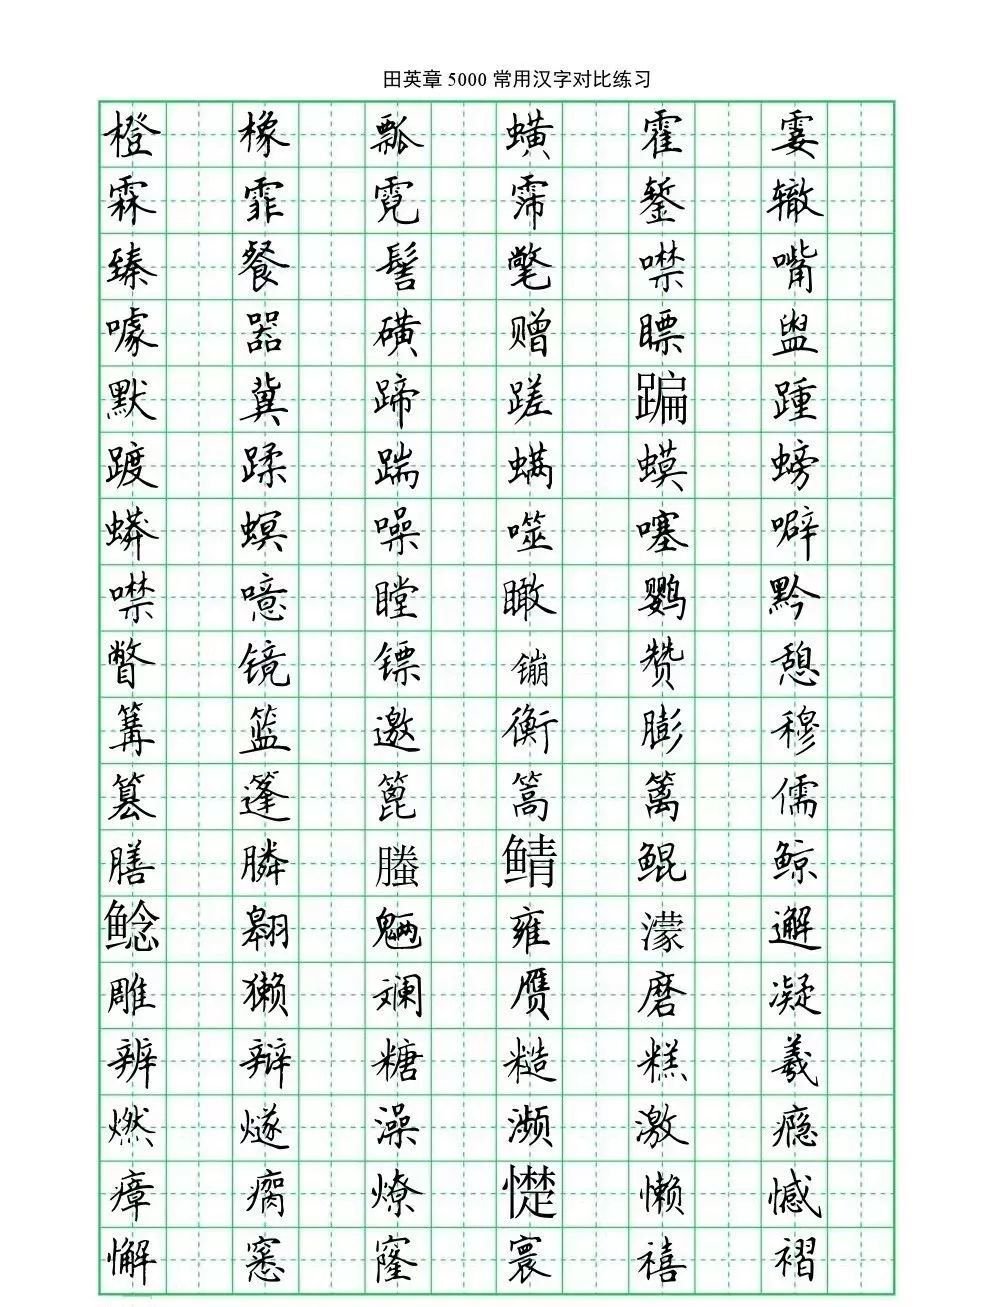 田英章 5000 常用汉字对比练习
橙 橡 瓢 蟥 霍 霎
霖 霏 霓 霈 錾 辙
臻 餐 髻 氅 噤 嘴
噱 器 磺 赠 瞟 盥
默 冀 蹄 蹉 蹁 踵
踱 蹂 踹 螨 蟆 螃
蟒 螟 噪 噬 噻 噼
噤 噫 瞠 瞰 鹦 黔
瞥 镜 镖 镚 赞 憩
篝 篮 邀 衡 膨 穆
篡 篷 篦 篙 篱 儒
膳 膦 螣 鲭 鲲 鲸
鲶 翱 魉 雍 濛 邂
雕 獭 斓 赝 磨 凝
辨 辩 糖 糙 糕 羲
燃 燧 澡 濒 激 瘾
瘴 瘸 燎 憷 懒 憾
懈 窸 窿 寰 禧 褶